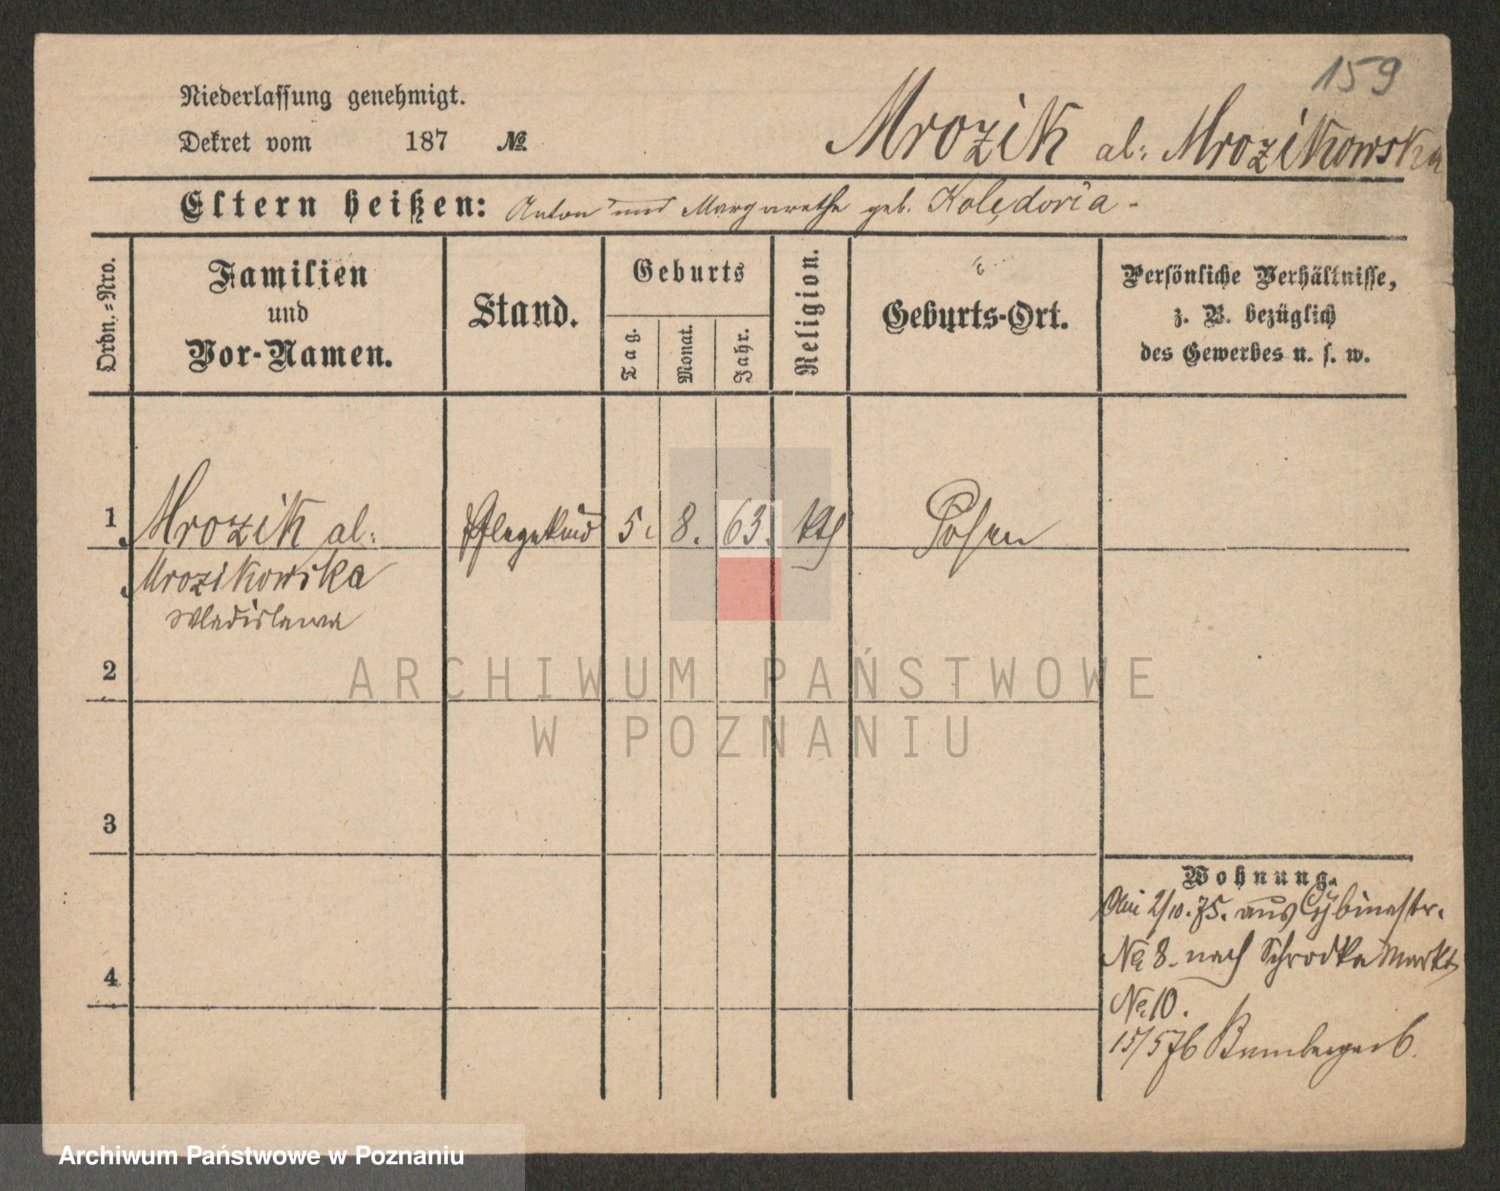 159
Niederlassung genehmigt.
Dekret vom 187 №
Mrozik al: Mrozikowska
Eltern heißen: Anton und Margarethe geb. Kolędoria -
Ordn.-Nro.
Familien
und
Vor-Namen.
Stand.
Geburts
Tag.
Monat.
Jahr.
Religion.
Geburts-Ort.
Persönliche Verhältnisse,
z. B. bezüglich
des Gewerbes u. s. w.
1 Mrozik al: Pflegekind 5. 8. 63. kth Posen
Mrozikowska
Wladislawa
2
3
4
Wohnung.
2/10.75. aus Cybinastr.
№ 8. nach Schrodka Markt
№ 10.
15/5 76
ARCHIWUM PAŃSTWOWE
W POZNANIU
Archiwum Państwowe w Poznaniu